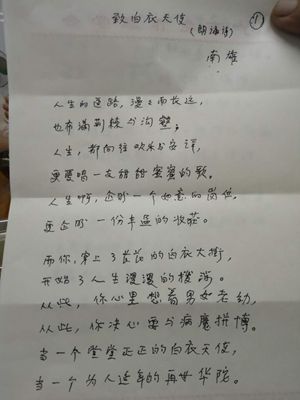 致白衣天使
(朗诵诗)
①
南雄
人生的道路,漫漫而长远,
也布满荆棘与沟壑;
人生,都向往欢乐与安详,
更要唱一支甜甜蜜蜜的歌。
人生啊,企盼一个如意的岗位,
还企盼一份丰盈的收获。
而你,穿上了茫茫的白衣大衔,
开始了人生漫漫的摆渡。
从此,你心里想着男女老幼,
从此,你决心要与病魔拼博。
当一个堂堂正正的白衣天使,
当一个为人造幸的再世华陀。